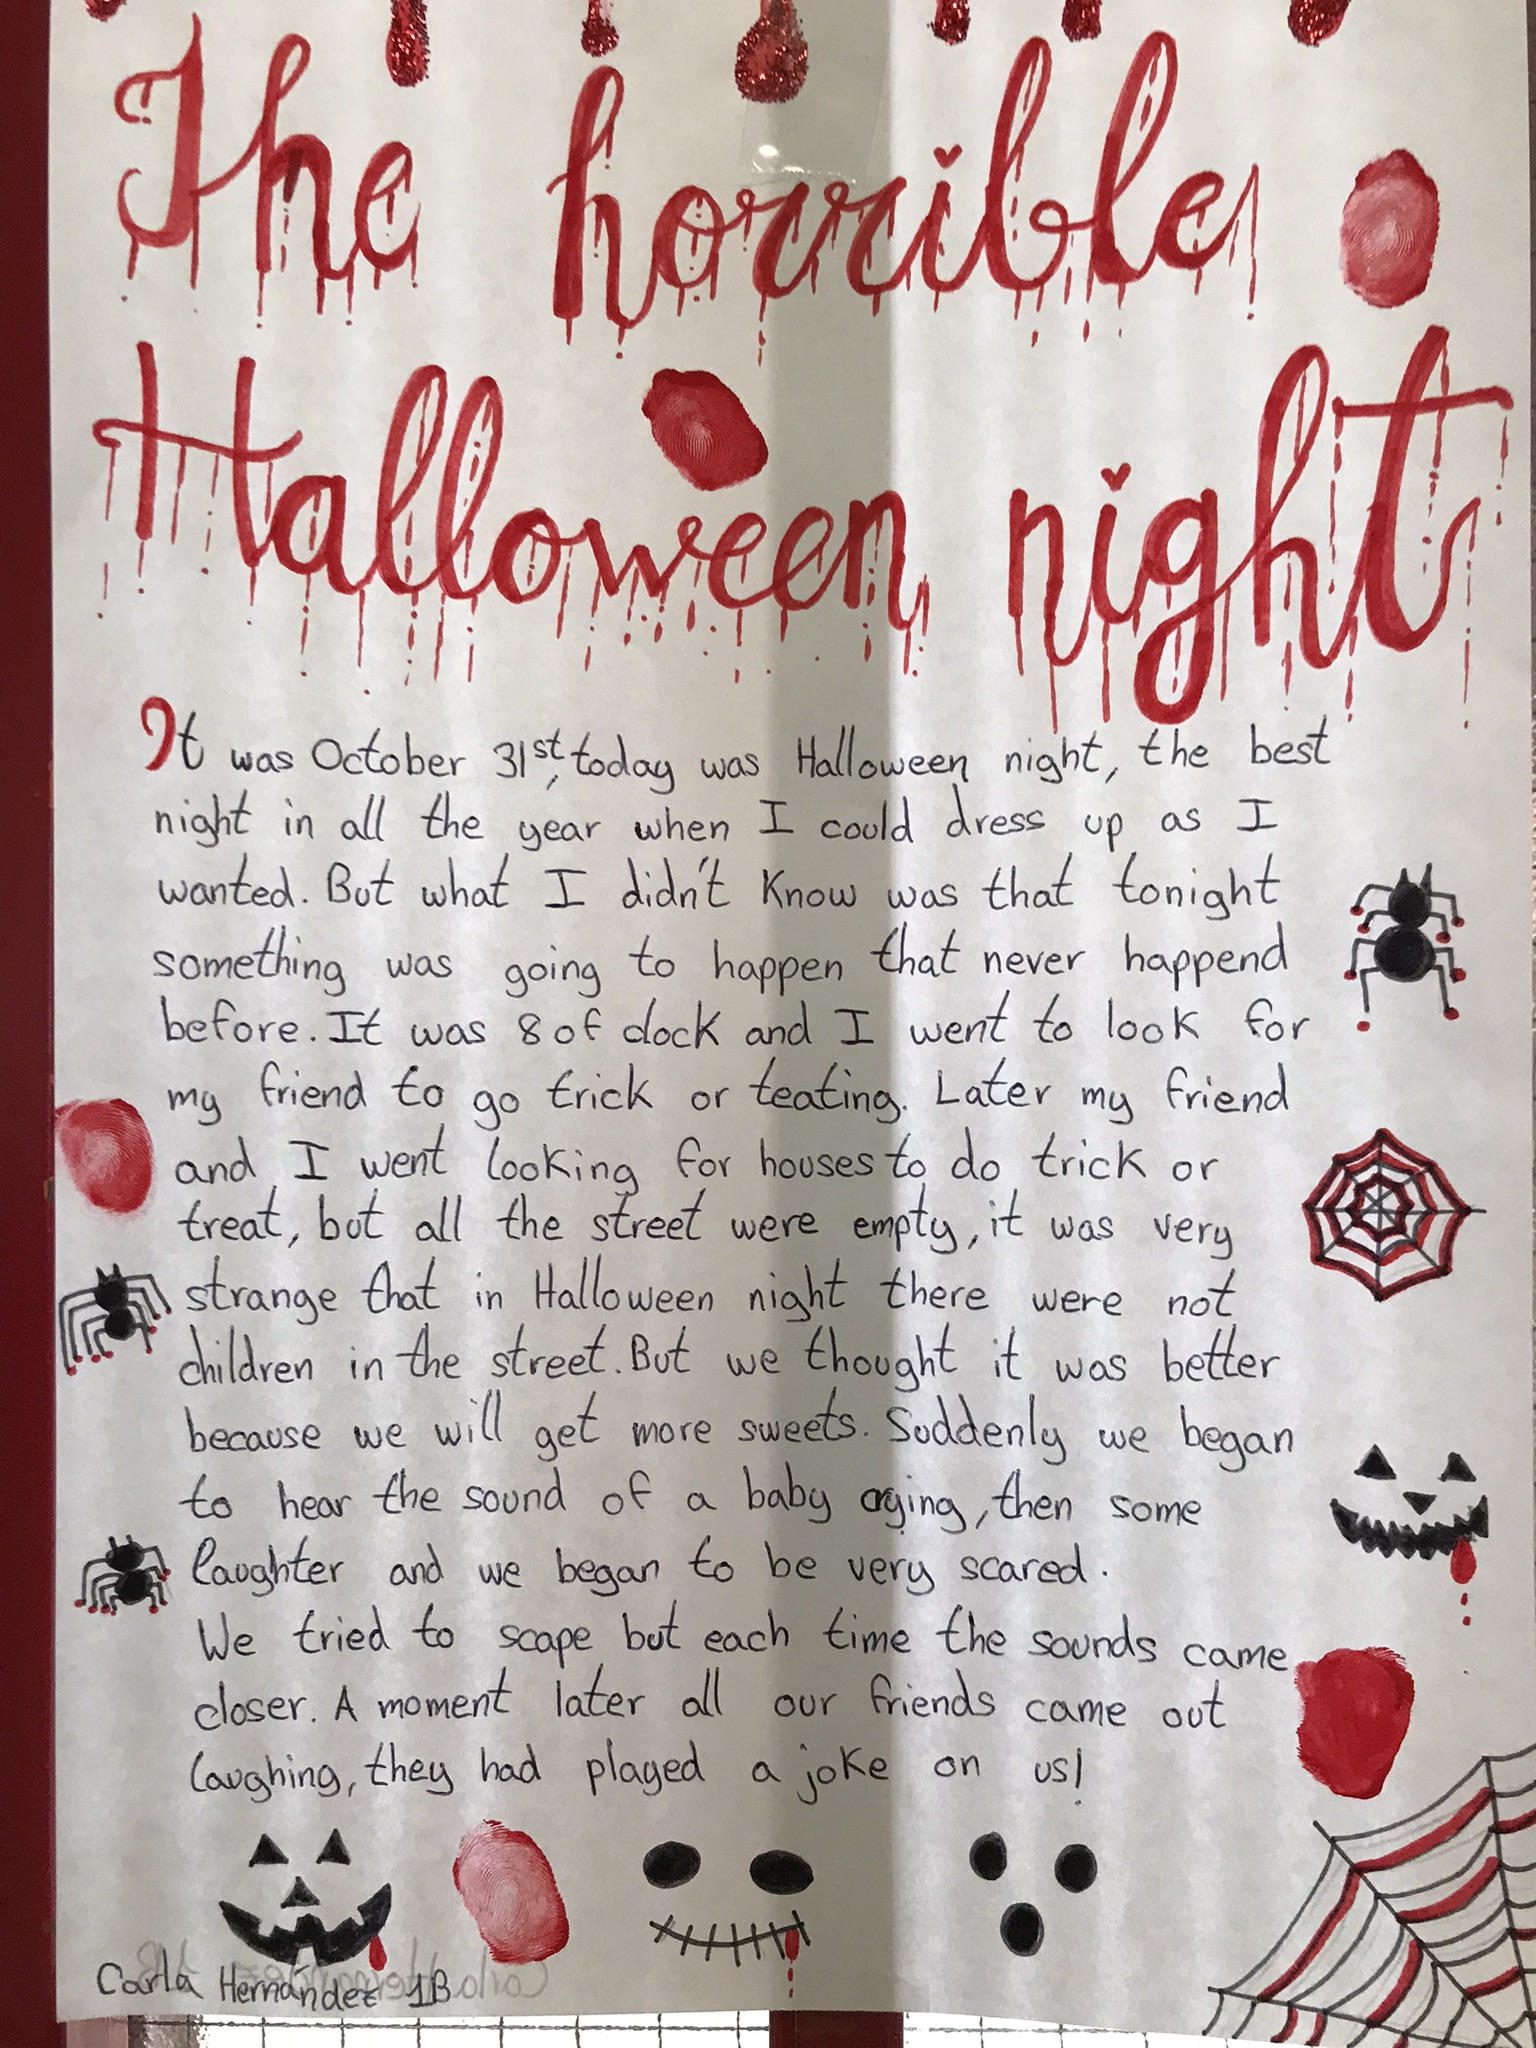 The horrible
Halloween night
It was October 31st, today was Halloween night, the best
night in all the year when I could dress up as I
wanted. But what I didn't know was that tonight
something was going to happen that never happend
before. It was 8 of clock and I went to look for
my friend to go trick or teating. Later my friend
and I went looking for houses to do trick or
treat, but all the street were empty, it was very
strange that in Halloween night there were not
children in the street. But we thought it was better
because we will get more sweets. Suddenly we began
to hear the sound of a baby crying, then some
laughter and we began to be very scared.
We tried to scape but each time the sounds came
closer. A moment later all our friends came out
laughing, they had played a joke on us!
Carla Hernández 1B